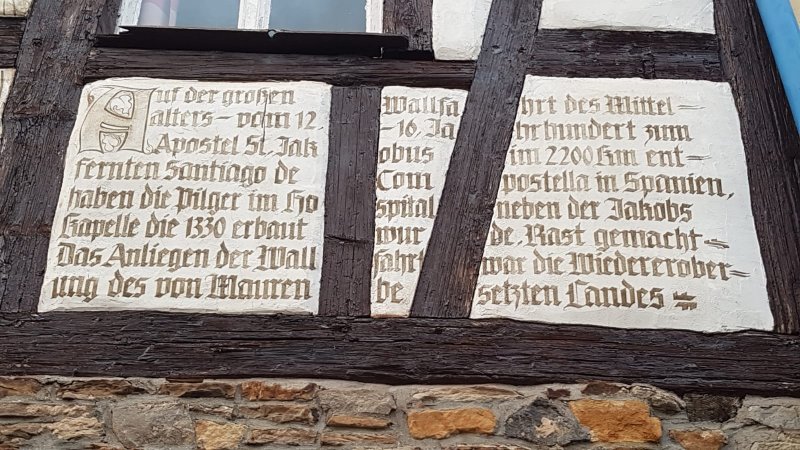 Auf der großen Wallfahrt des Mittel-
alters - vom 12. - 16. Jahrhundert zum
Apostel St. Jakobus im 2200 Km ent-
fernten Santiago de Compostella in Spanien,
haben die Pilger im Hospital neben der Jakobs
Kapelle die 1330 erbaut wurde, Rast gemacht.
Das Anliegen der Wallfahrt war die Wiedererober-
ung des von Mauren besetzten Landes